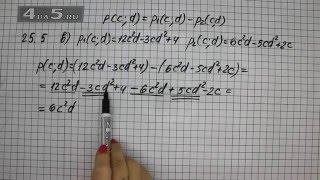 4ДЗ.ru
p(c,d) = p₁(c,d) − p₂(c,d)
25.5 в) p₁(c,d)=12c²d−3cd²+4 p₂(c,d)=6c²d−5cd²+2c
p(c,d)=(12c²d−3cd²+4)−(6c²d−5cd²+2c)=
=12c²d−3cd²+4−6c²d+5cd²−2c=
=6c²d